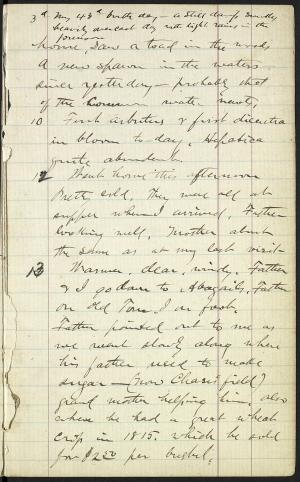 3d My 43d birth day – a still damp smoky
heavily overcast day with light rains in the
forenoon
home, Saw a toad in the woods
A new spawn in the waters
since yesterday – probably that
of the common water newts,
10 First arbutus & first dicentra
in bloom to day, Hepatica
quite abundant
12 Went home this afternoon
Pretty cold, They were all at
supper when I arrived, Father
looking well, Mother about
the same as at my last visit
13 Warmer, clear, windy, Father
& I go down to Abagails, Father
on Old Tom, I on foot,
Father pointed out to me as
we went slowly along where
his father used to make
sugar – (now Chase's field)
grand mother helping him, also
where he had a great wheat
crop in 1815, which he sold
for $2.50 per bushel,